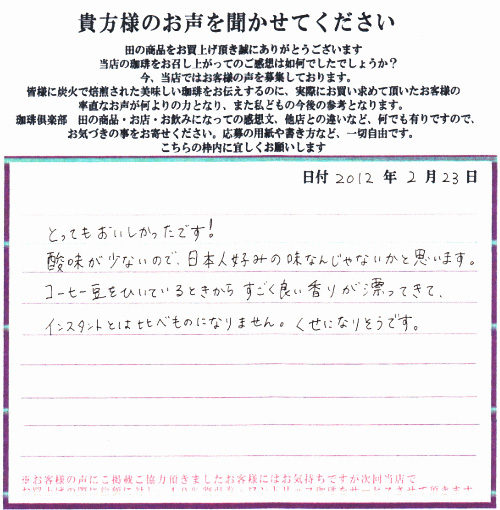 貴方様のお声を聞かせてください
田の商品をお買上げ頂き誠にありがとうございます
当店の珈琲をお召し上がってのご感想は如何でしたでしょうか？
今、当店ではお客様の声を募集しております。
皆様に炭火で焙煎された美味しい珈琲をお伝えするのに、実際にお買い求めて頂いたお客様の
率直なお声が何よりの力となり、また私どもの今後の参考となります。
珈琲倶楽部　田の商品・お店・お飲みになっての感想文、他店との違いなど、何でも有りですので、
お気づきの事をお寄せください。応募の用紙や書き方など、一切自由です。
こちらの枠内に宜しくお願いします
日付 2012 年 2 月 23 日
とってもおいしかったです！
酸味が少ないので、日本人好みの味なんじゃないかと思います。
コーヒー豆をひいているときから すごく良い香りが漂ってきて、
インスタントとは比べものになりません。くせになりそうです。
※お客様の声にご掲載ご協力頂きましたお客様にはお気持ちですが次回当店で